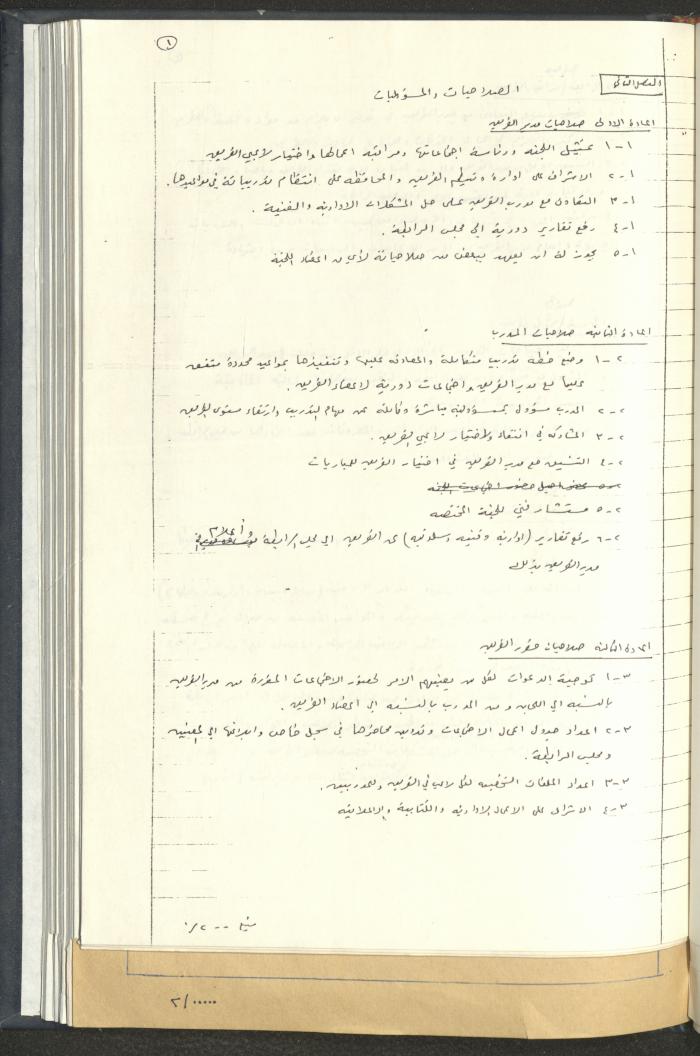 ١
الفصل الثاني
الصلاحيات والمسؤوليات
المادة الاولى صلاحيات مدير الفريق
١-١ تمثيل اللجنة ورئاسة اجتماعاتها ومراقبة اعمالها واختيار لاعبي الفريق
١-٢ الاشراف على ادارة وتنظيم الفريق والمحافظة على انتظام تدريباته في مواعيدها.
١-٣ التعاون مع مدرب الفريق على حل المشكلات الادارية والفنية .
١-٤ رفع تقارير دورية الى مجلس الرابطة .
١-٥ يجوز له ان يعهد ببعض من صلاحياته لأي من اعضاء اللجنة
المادة الثانية صلاحيات المدرب
٢-١ وضع خطة تدريب متكاملة والمصادقه عليها وتنفيذها بمواعيد محددة متفق
عليها مع مدير الفريق واجتماعات دورية لاعضاء الفريق .
٢-٢ المدرب مسؤول مسؤولية مباشرة وكاملة عن مهام التدريب وارتقاء مستوى الفريق
٢-٣ المشاركه في انتقاء واختيار لاعبي الفريق .
٢-٤ التنسيق مع مدير الفريق في اختيار الفريق للمباريات
٢-٥ حضور اجتماعات اللجنه
٢-٥ مستشار فني للجنة المختصه
٢-٦ رفع تقارير (ادارية وفنيه وسلوكيه) عن الفريق الى مجلس الرابطة
أعلام
مدير الفريق بذلك
المادة الثالثة صلاحيات مقرر الفريق
٣-١ توجيه الدعوات لكل من يعنيهم الامر لحضور الاجتماعات المقررة من مدير الفريق
بالنسبه الى اللجنه ومن المدرب بالنسبه الى اعضاء الفريق .
٣-٢ اعداد جدول اعمال الاجتماعات وتدوين محاضرها في سجل خاص وابلاغها الى المعنيين
ومجلس الرابطة .
٣-٣ اعداد الملفات الشخصيه لكل لاعب في الفريق وللمدربين .
٣-٤ الاشراف على الاعمال الادارية والكتابية والاعلانيه
يتبع --٢/٠
٢/٠٠٠٠٠